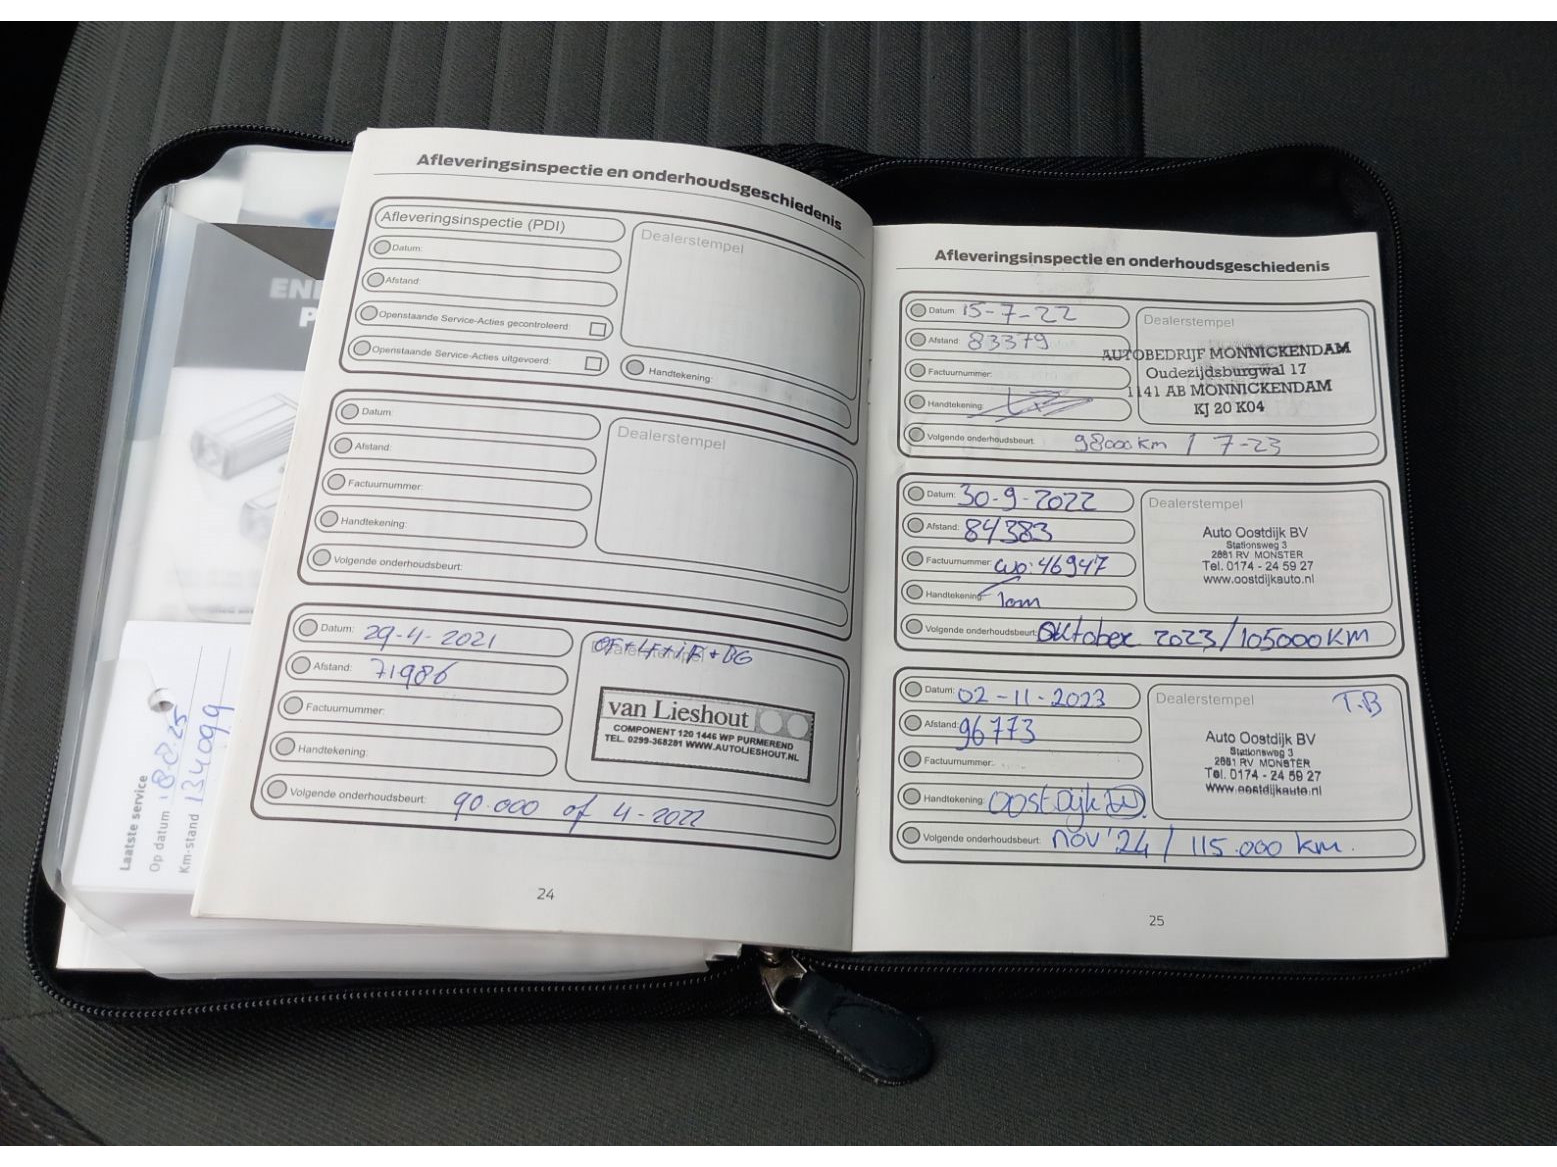 Afleveringsinspectie en onderhoudsgeschiedenis
Afleveringsinspectie (PDI)
Datum:
Afstand:
Openstaande Service-Acties gecontroleerd:
Openstaande Service-Acties uitgevoerd:
Dealerstempel
Handtekening:
Datum:
Afstand:
Factuurnummer:
Handtekening:
Volgende onderhoudsbeurt:
Dealerstempel
Datum: 29-4-2021
Afstand: 71986
Factuurnummer:
Handtekening:
Dealerstempel
van Lieshout
COMPONENT 120 1446 WP PURMEREND
TEL. 0299-368281 WWW.AUTOLIESHOUT.NL
Volgende onderhoudsbeurt: 90.000 of 4-2022
24
Laatste service
Op datum
Km-stand 134099
Afleveringsinspectie en onderhoudsgeschiedenis
Datum: 15-7-22
Afstand: 83379
Factuurnummer:
Handtekening:
Dealerstempel
AUTOBEDRIJF MONNICKENDAM
Oudezijdsburgwal 17
1141 AB MONNICKENDAM
KJ 20 K04
Volgende onderhoudsbeurt: 98000 km / 7-23
Datum: 30-9-2022
Afstand: 84383
Factuurnummer: wo: 46947
Handtekening: Tom
Dealerstempel
Auto Oostdijk BV
Stationsweg 3
2681 RV MONSTER
Tel. 0174 - 24 59 27
www.oostdijkauto.nl
Volgende onderhoudsbeurt: Oktober 2023/105000 KM
Datum: 02-11-2023
Afstand: 96773
Factuurnummer:
Handtekening: Oostdijk
Dealerstempel
T.B
Auto Oostdijk BV
Stationsweg 3
2681 RV MONSTER
Tel. 0174 - 24 59 27
www.oostdijkauto.nl
Volgende onderhoudsbeurt: nov '24 / 115.000 km.
25